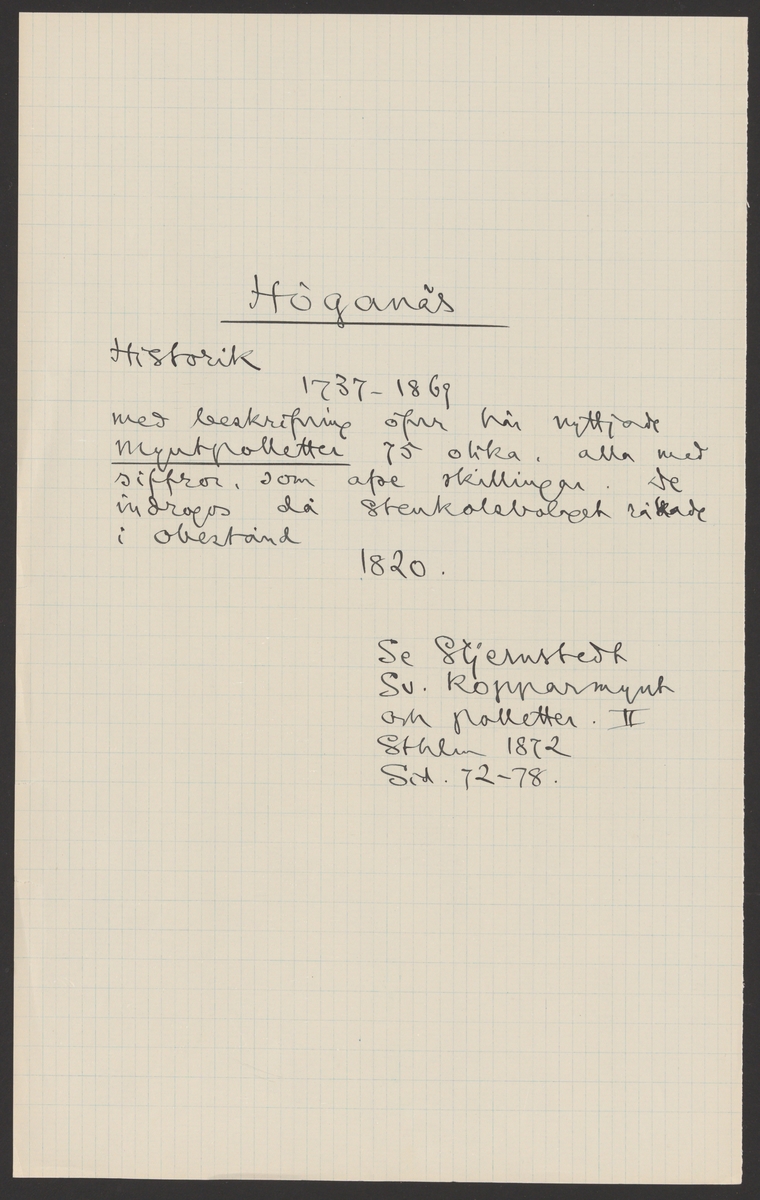 Höganäs
Historik
1737-1869
med beskrifning öfver här nyttjade
Myntpolletter 75 olika. alla med
siffror, som afse skillingar. De
indrogos då Stenkolsbolaget råkade
i obestånd
1820.
Se Stjernstedt
Sv. Kopparmynt
och polletter. II
Sthlm 1872
Sid. 72-78.